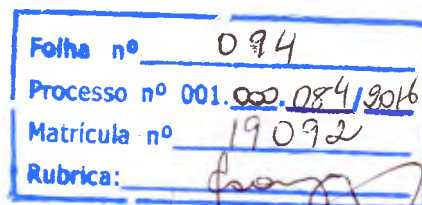 Folha nº 094
Processo nº 001.000.084/2016
Matrícula nº 19092
Rubrica: